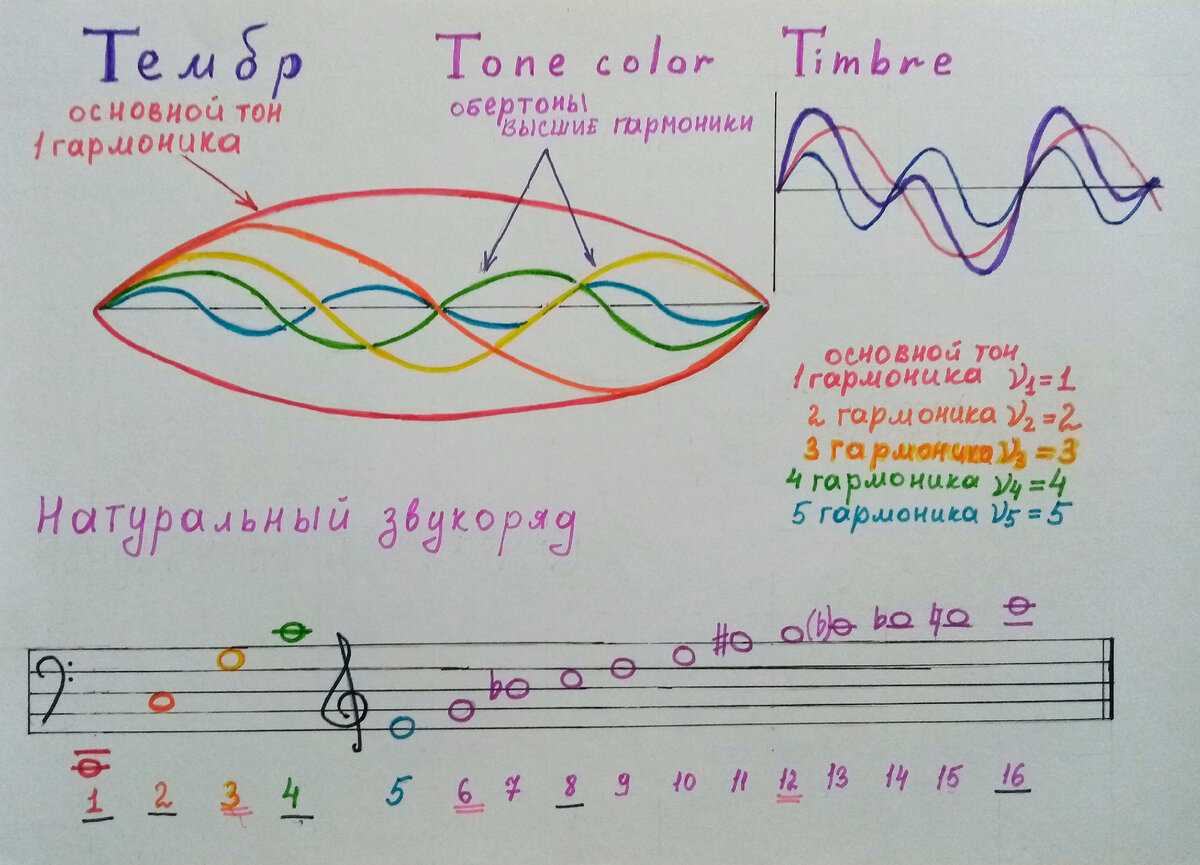 Тембр
основной тон
1 гармоника
Tone color
обертоны
высшие гармоники
Timbre
основной тон
1 гармоника ν₁=1
2 гармоника ν₂=2
3 гармоника ν₃=3
4 гармоника ν₄=4
5 гармоника ν₅=5
Натуральный звукоряд
1 2 3 4 5 6 7 8 9 10 11 12 13 14 15 16